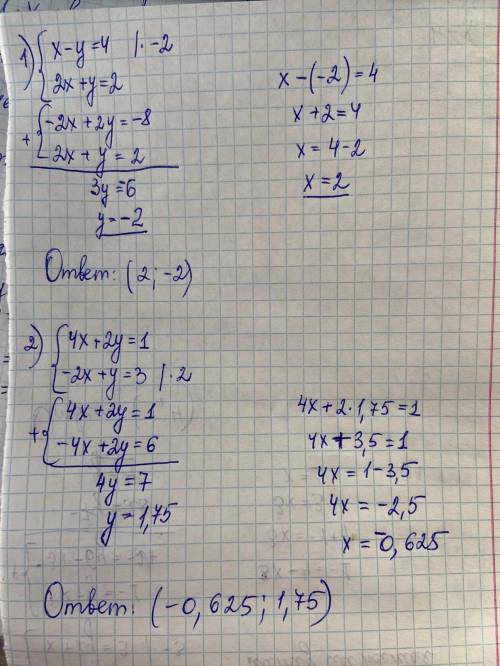 1) x-y=4 |·-2
2x+y=2
+ -2x+2y=-8
2x+y=2
3y=-6
y=-2
x-(-2)=4
x+2=4
x=4-2
x=2
Ответ: (2;-2)
2) 4x+2y=1
-2x+y=3 |·2
+ 4x+2y=1
-4x+2y=6
4y=7
y=1,75
4x+2·1,75=1
4x+3,5=1
4x=1-3,5
4x=-2,5
x=-0,625
Ответ: (-0,625;1,75)